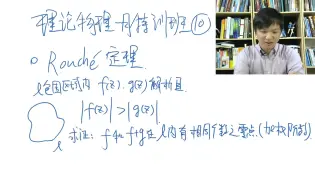 理论物理一月特训班⑩
Rouché 定理.
l包围区域内 f(z), g(z)解析且
|f(z)|>|g(z)|
l
求证: f 和 f+g 在 l 内有相同个数之零点.(加权阶数)